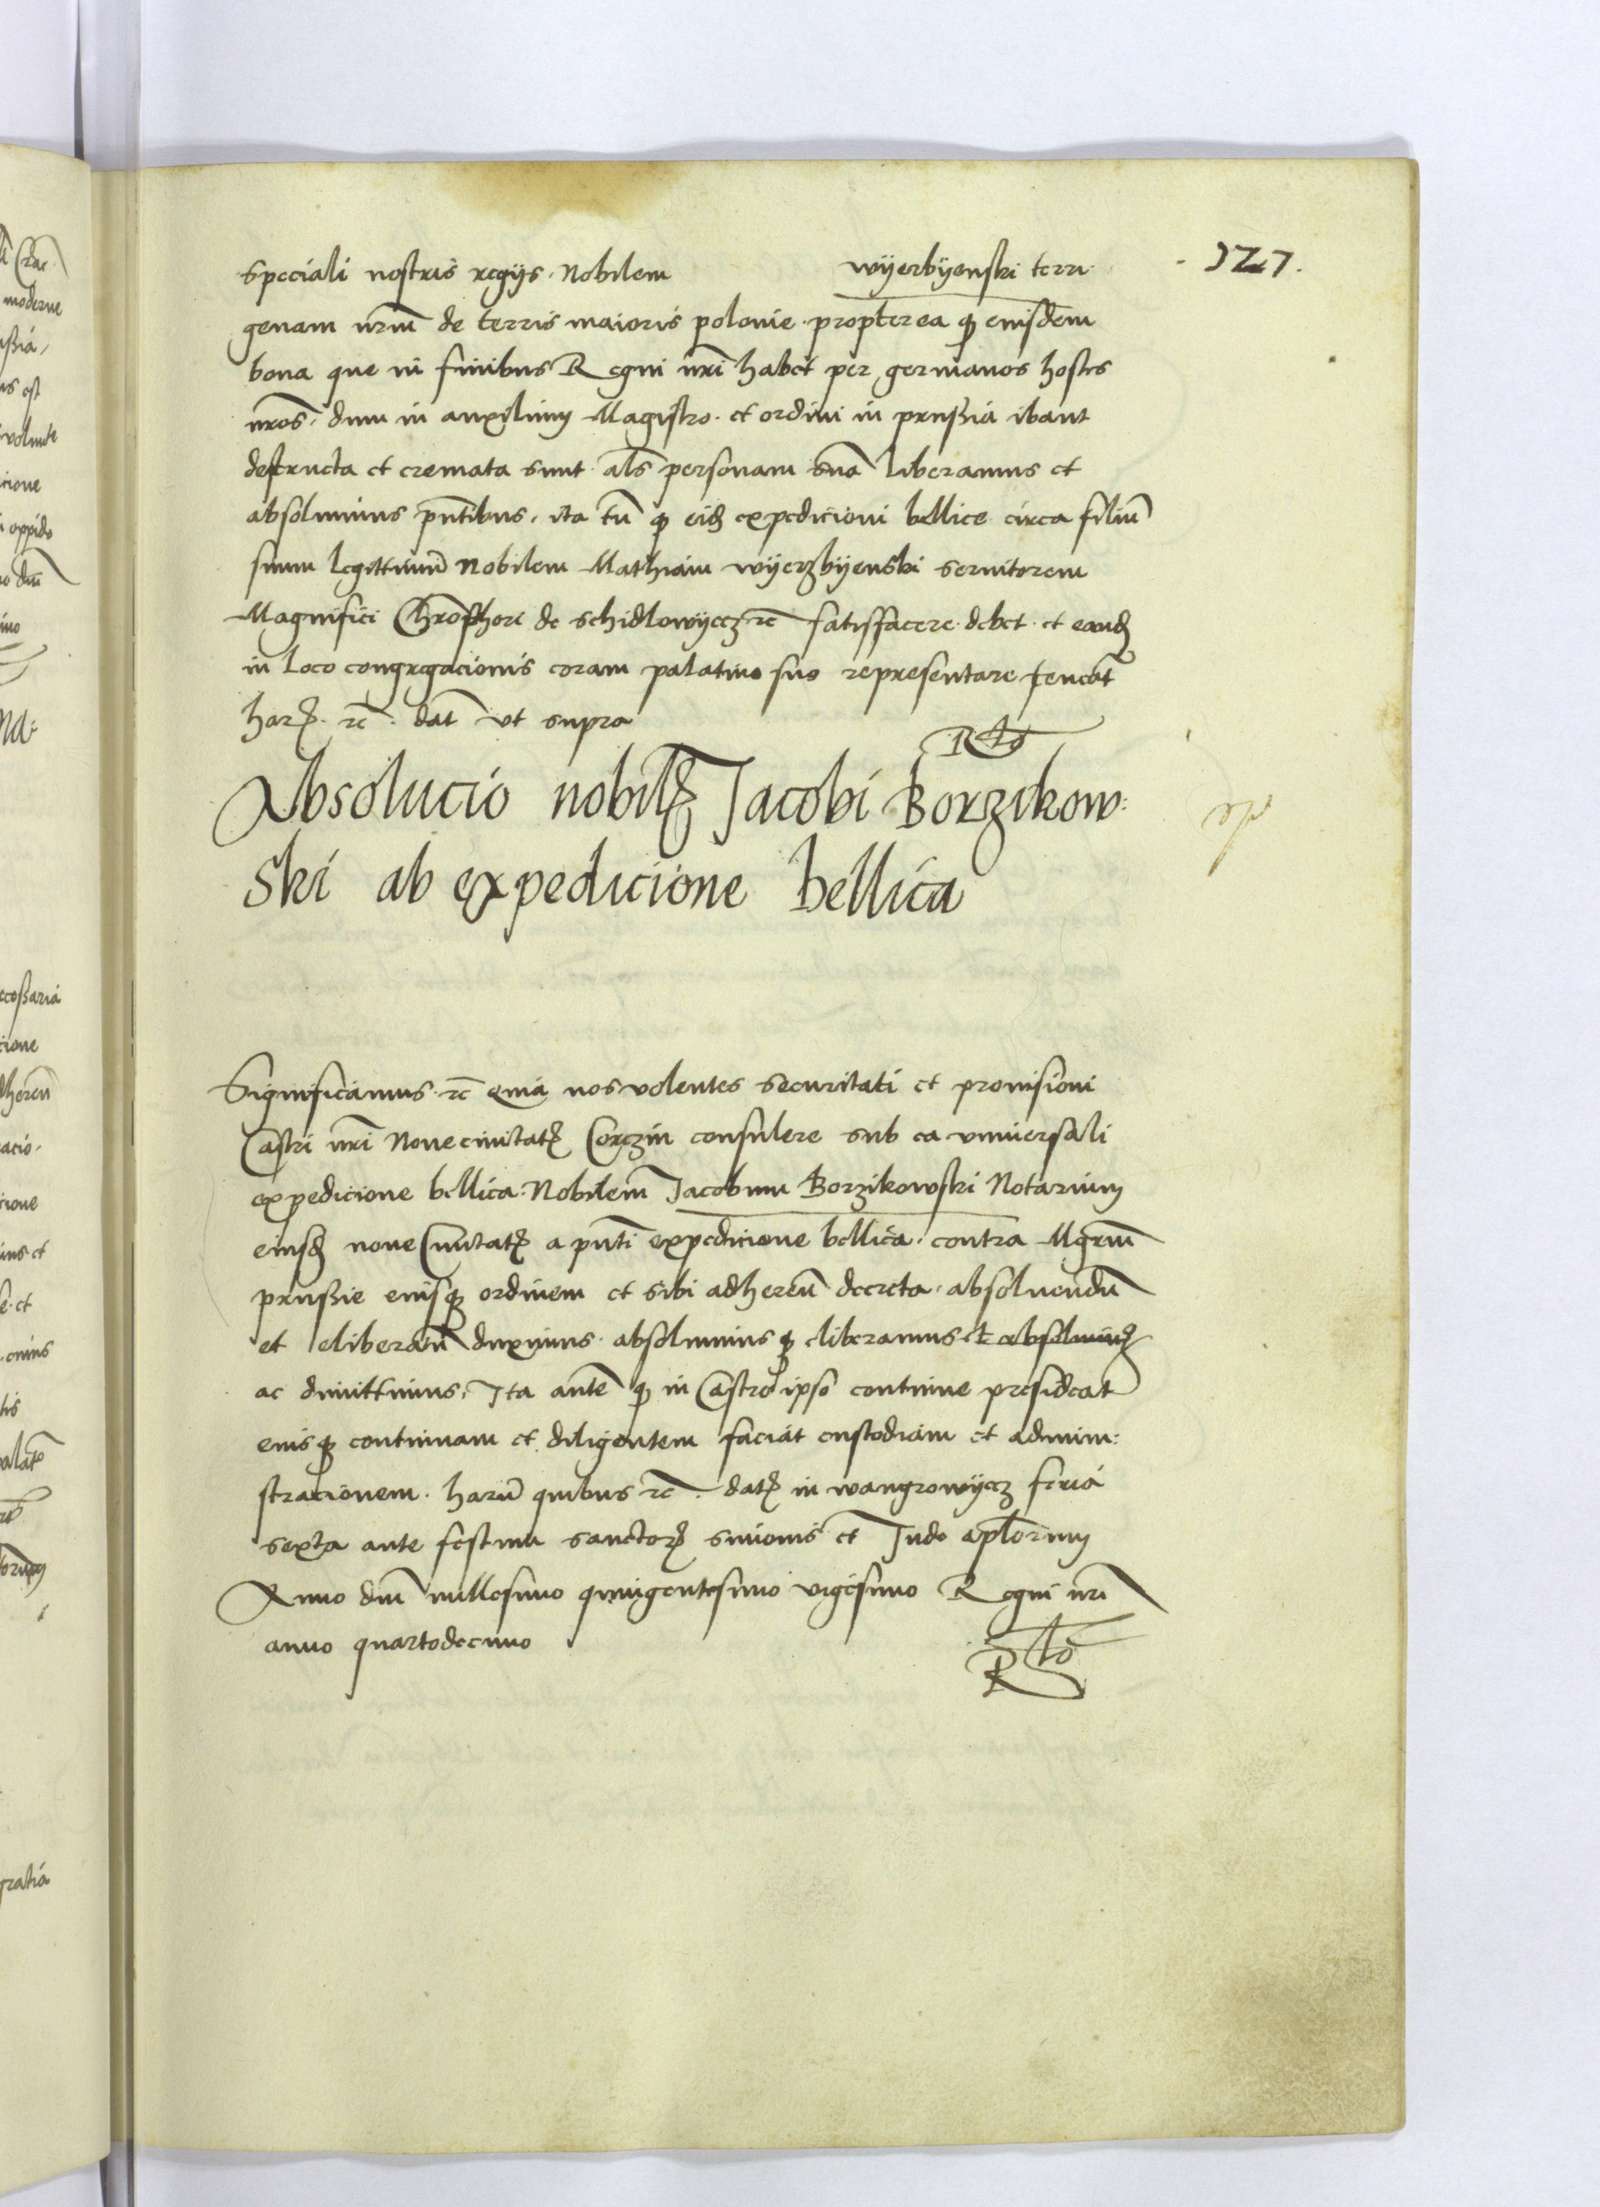 speciali nostris regijs. Nobilem wyerbyenski terri
.327.
genam nrm̄ de terris maioris polonie. propterea ꝙ eiusdem
bona que in finibus Regni nr̄i habet per germanos hostes
nr̄os. dum in auxilium Magistro. et ordini in prussia ibant
destructa et cremata sunt. al̄s personam suā liberamus et
absoluimus pn̄tibus. ita tn̄ ꝙ eidē expedicioni bellice circa filiū
suum legittimū Nobilem Mathiam wyerzbyenski seruitorem
Magnifici Chrōphori de schidlowyecz rc̄ satisfacere debet. et eandē
in loco congregacionis coram palatino suo representare tenebit
harꝝ. rc̄. dat̄ ut supra
Rto
Absolucio nobilꝭ Jacobi Borzikow:
ski ab expedicione bellica
Significamus. rc̄ quia nos volentes securitati et prouisioni
Castri nr̄i Nouecinitatꝭ Corczin consulere sub ea vniuersali
expedicione bellica. Nobilem̄ Jacobum Borzikowski Notarium
eiusdē noue Ciuitatꝭ a pn̄ti expedicione bellica. contra Mgrm̄
prussie eiusqꝫ ordinem et sibi adheren̄ decreta. absoluendū
et eliberan̄ duximus. absoluimusqꝫ eliberamus et absoluimꝰ
ac dimittimus. Ita autē ꝙ in Castro ipso continue presideat
eiusqꝫ continuam et diligentem faciat custodiam et admini:
stracionem. harū quibus rc̄. datꝭ in wangrowyecz feria
sexta ante festum sanctoꝝ simonis et Jude apl̄orum
Anno dn̄i millesimo quingentesimo vigesimo Regni nr̄i
anno quartodecimo
Rto